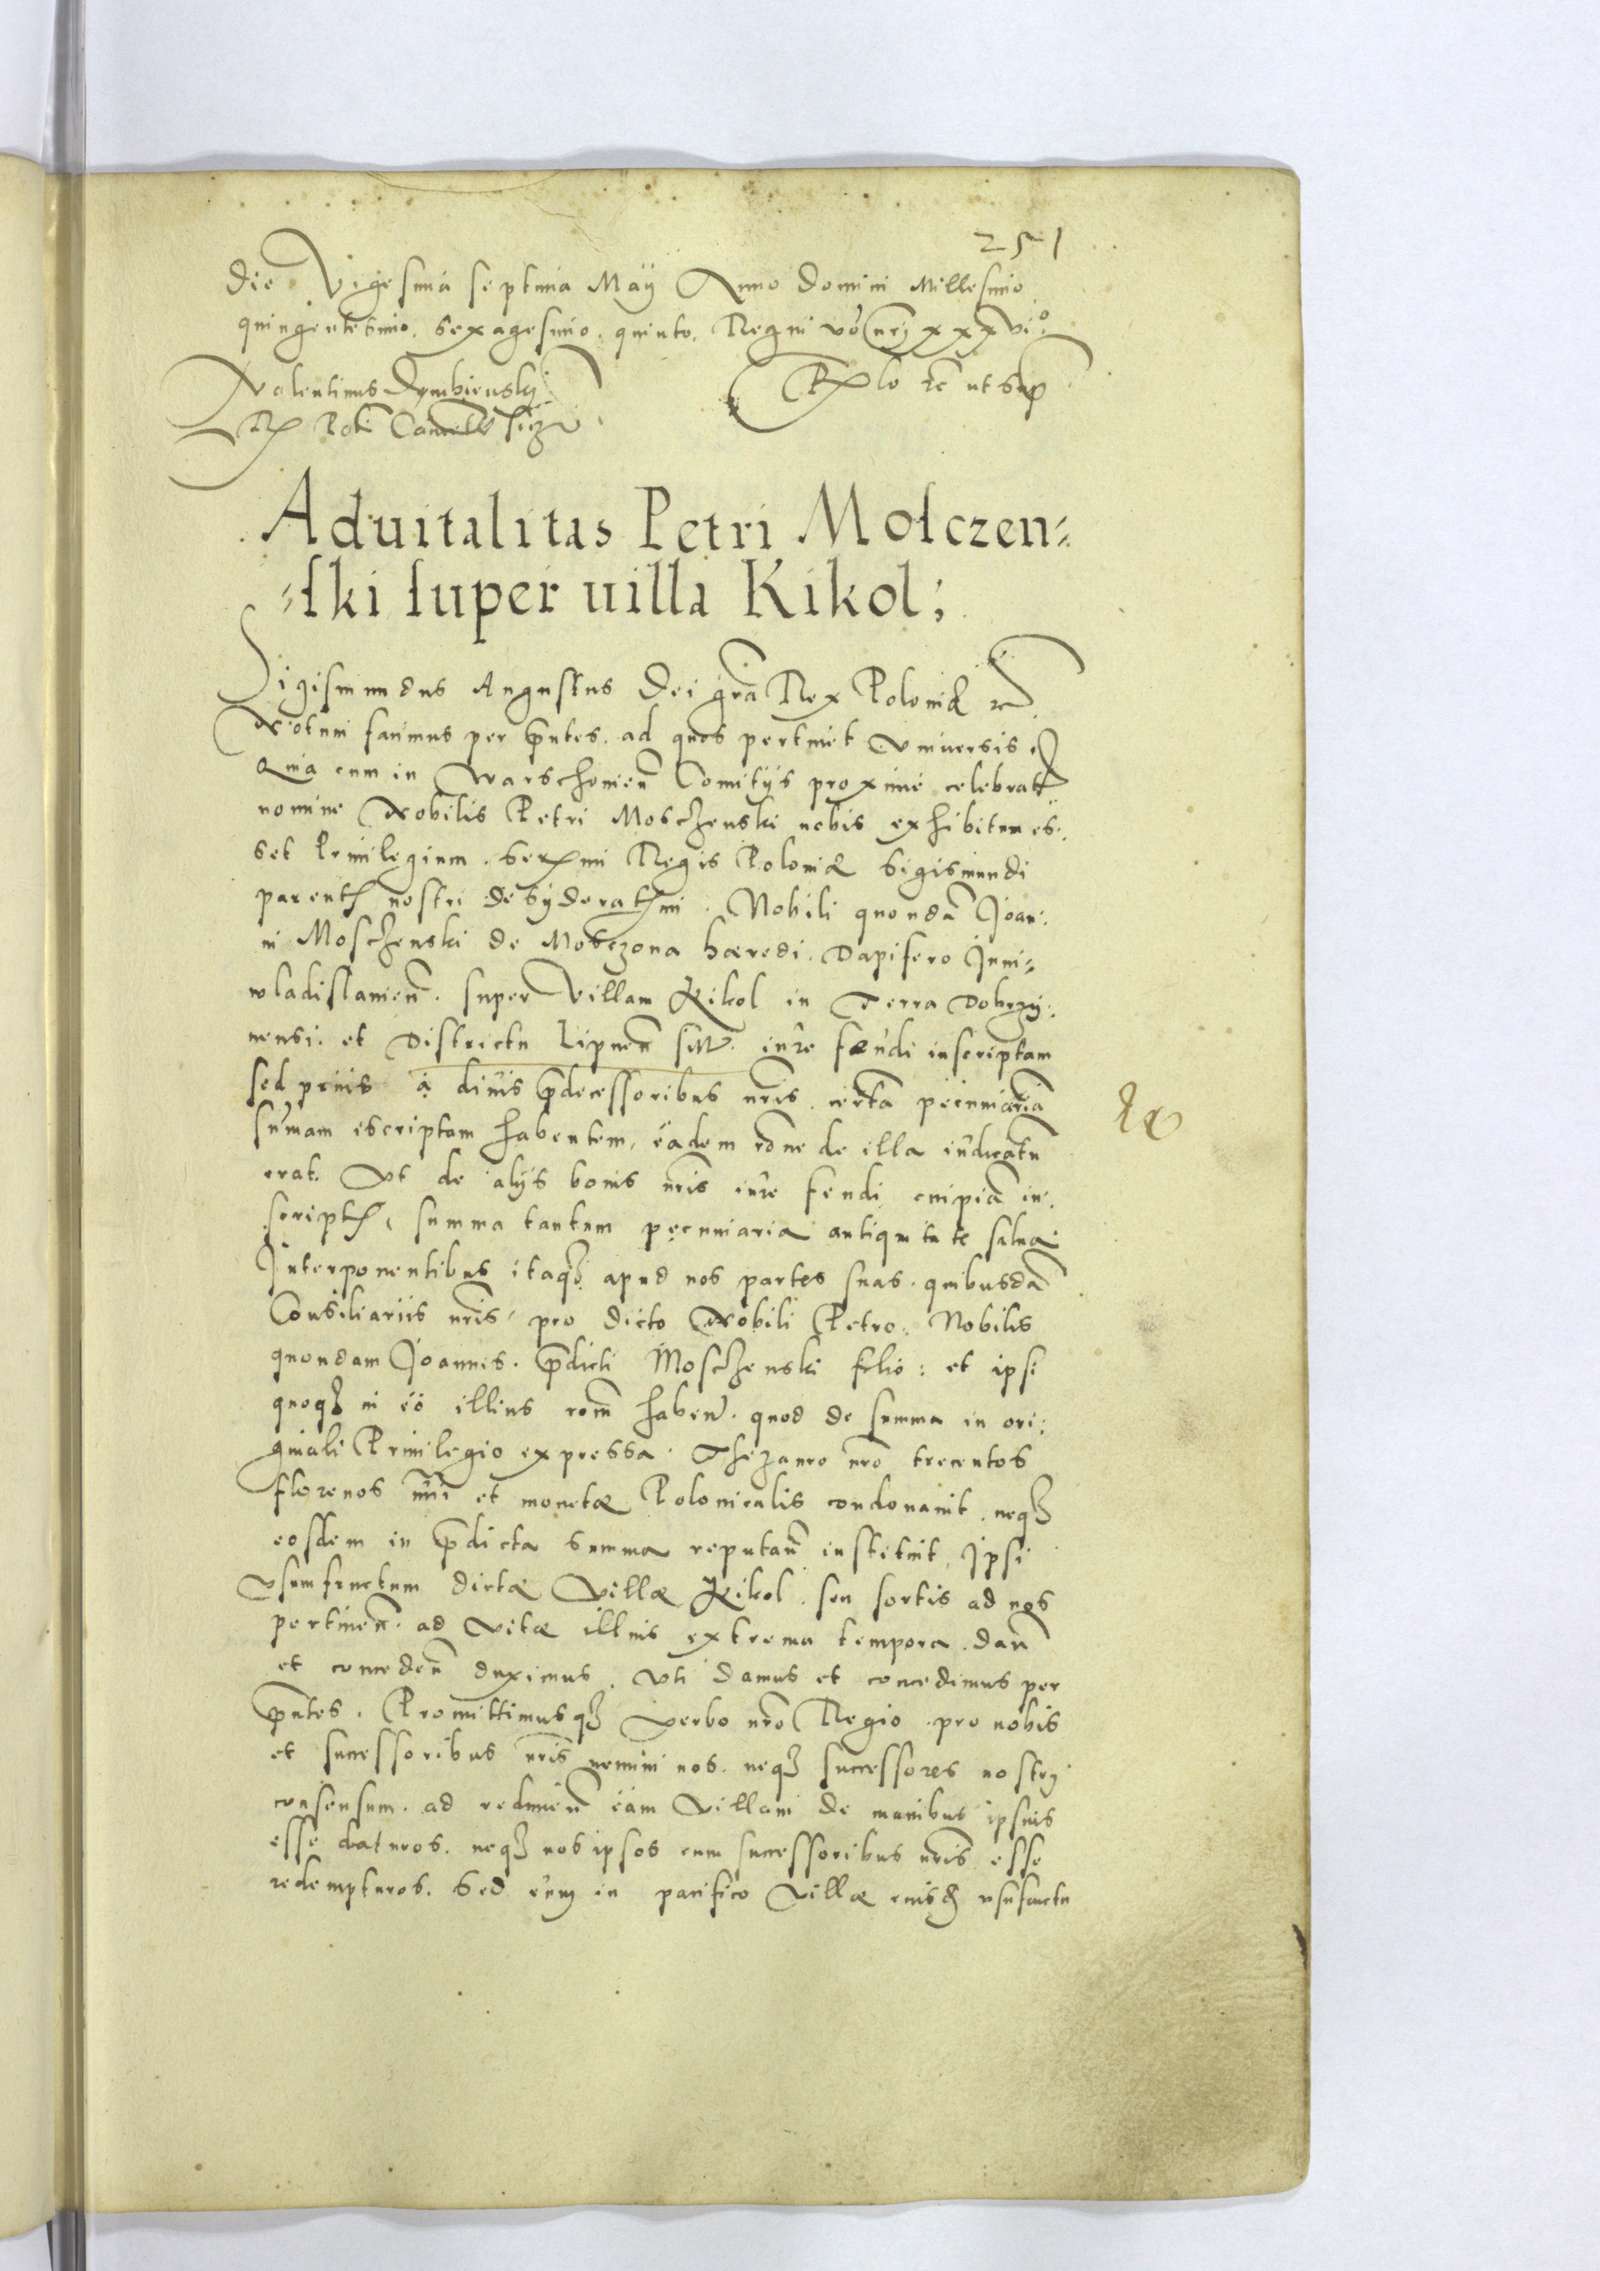 251
Die Vigesima septima Maÿ Anno Domini Millesimo
quingentesimo. sexagesimo. quinto. Regni vero nrĩ xxxvi°
Valentinus Dembienski
R P Cancell
ut sup
Aduitalitas Petri Moſczen⸗
⸗ſki ſuper uilla Kikol;
Sigismundus Augustus Dei grã Rex Poloniæ
Notum facimus per pñtes. ad quos pertinet Vniuersis
Quia cum in Warschouieñ Comitÿs proxime celebratis
nomine Nobilis Petri Moschenski nobis exhibitum es:
set Priuilegium. Serᵐⁱ Regis Poloniæ Sigismundi
parentis nostri desyderatmi. Nobili quondã Joan:
ni Moschenski de Mosczona hæredi. Dapifero Juni⸗
wladislauieñ. super Villam Kikol in Terra Dobrzÿ:
nensi. et Districtu Lipneñ sitã. iure fæudi inscriptam
sed prius à diuis p̃decessoribus nrĩs. certã pecuniariã
sum̃am escriptam habentem, eadem rõne de illa iudicatũ
erat. Vt de alÿs bonis nrĩs iure feudi cuipiã in:
scriptis, summa tantum pecuniaria antiquitate salua
Interponentibus itaqʒ apud nos partes suas. quibusdã
Consiliariis nrĩs pro dicto Nobili Petro. Nobilis
quondam Joannis. p̃dicti Moschenski filio: et ipsi
quoqʒ in eo illius rõm habeñ. quod de summa in ori:
ginali Priuilegio expressa. Thezauro nrõ trecentos
florenos et monetæ Polonicalis condonauit. neqʒ
eosdem in p̃dicta summa reputañ instituit, Ipsi
Vsumfructum dictæ Villæ Kikol. seu sortis ad nos
pertineñ. ad Vitæ illius extrema tempora. dañ
et concedeñ duximus. Vti damus et concedimus per
p̃ntes. Promittimusqʒ Verbo nrõ Regio. pro nobis
et successoribus nrĩs nemini nos. neqʒ successores nostrj
consensum. ad redimeñ eam Villam de manibus ipsius
esse daturos. neqʒ nos ipsos cum successoribus nrĩs esse
redempturos. Sed eum in pacifico Villæ eiusdẽ vsufructu